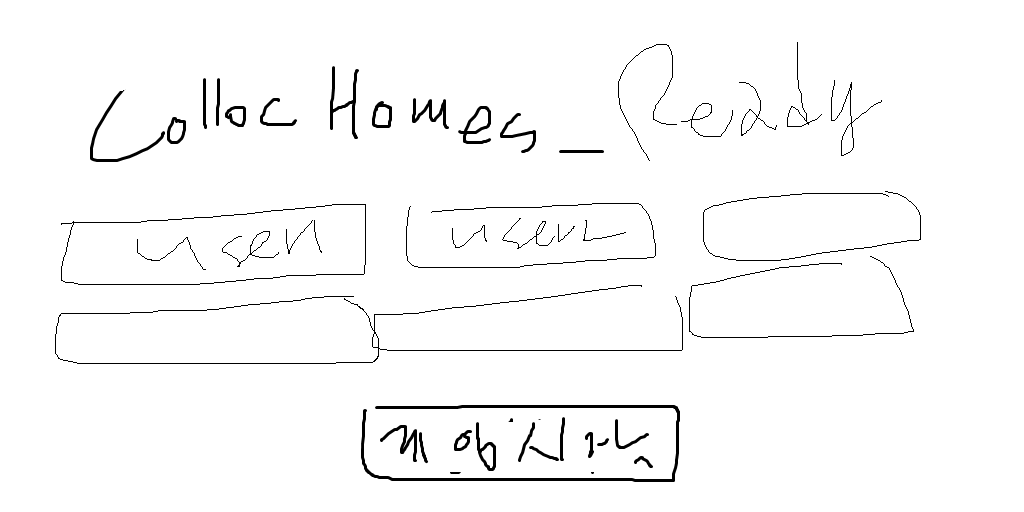 Colloc Homes_Ready
user1 user2
게임시작